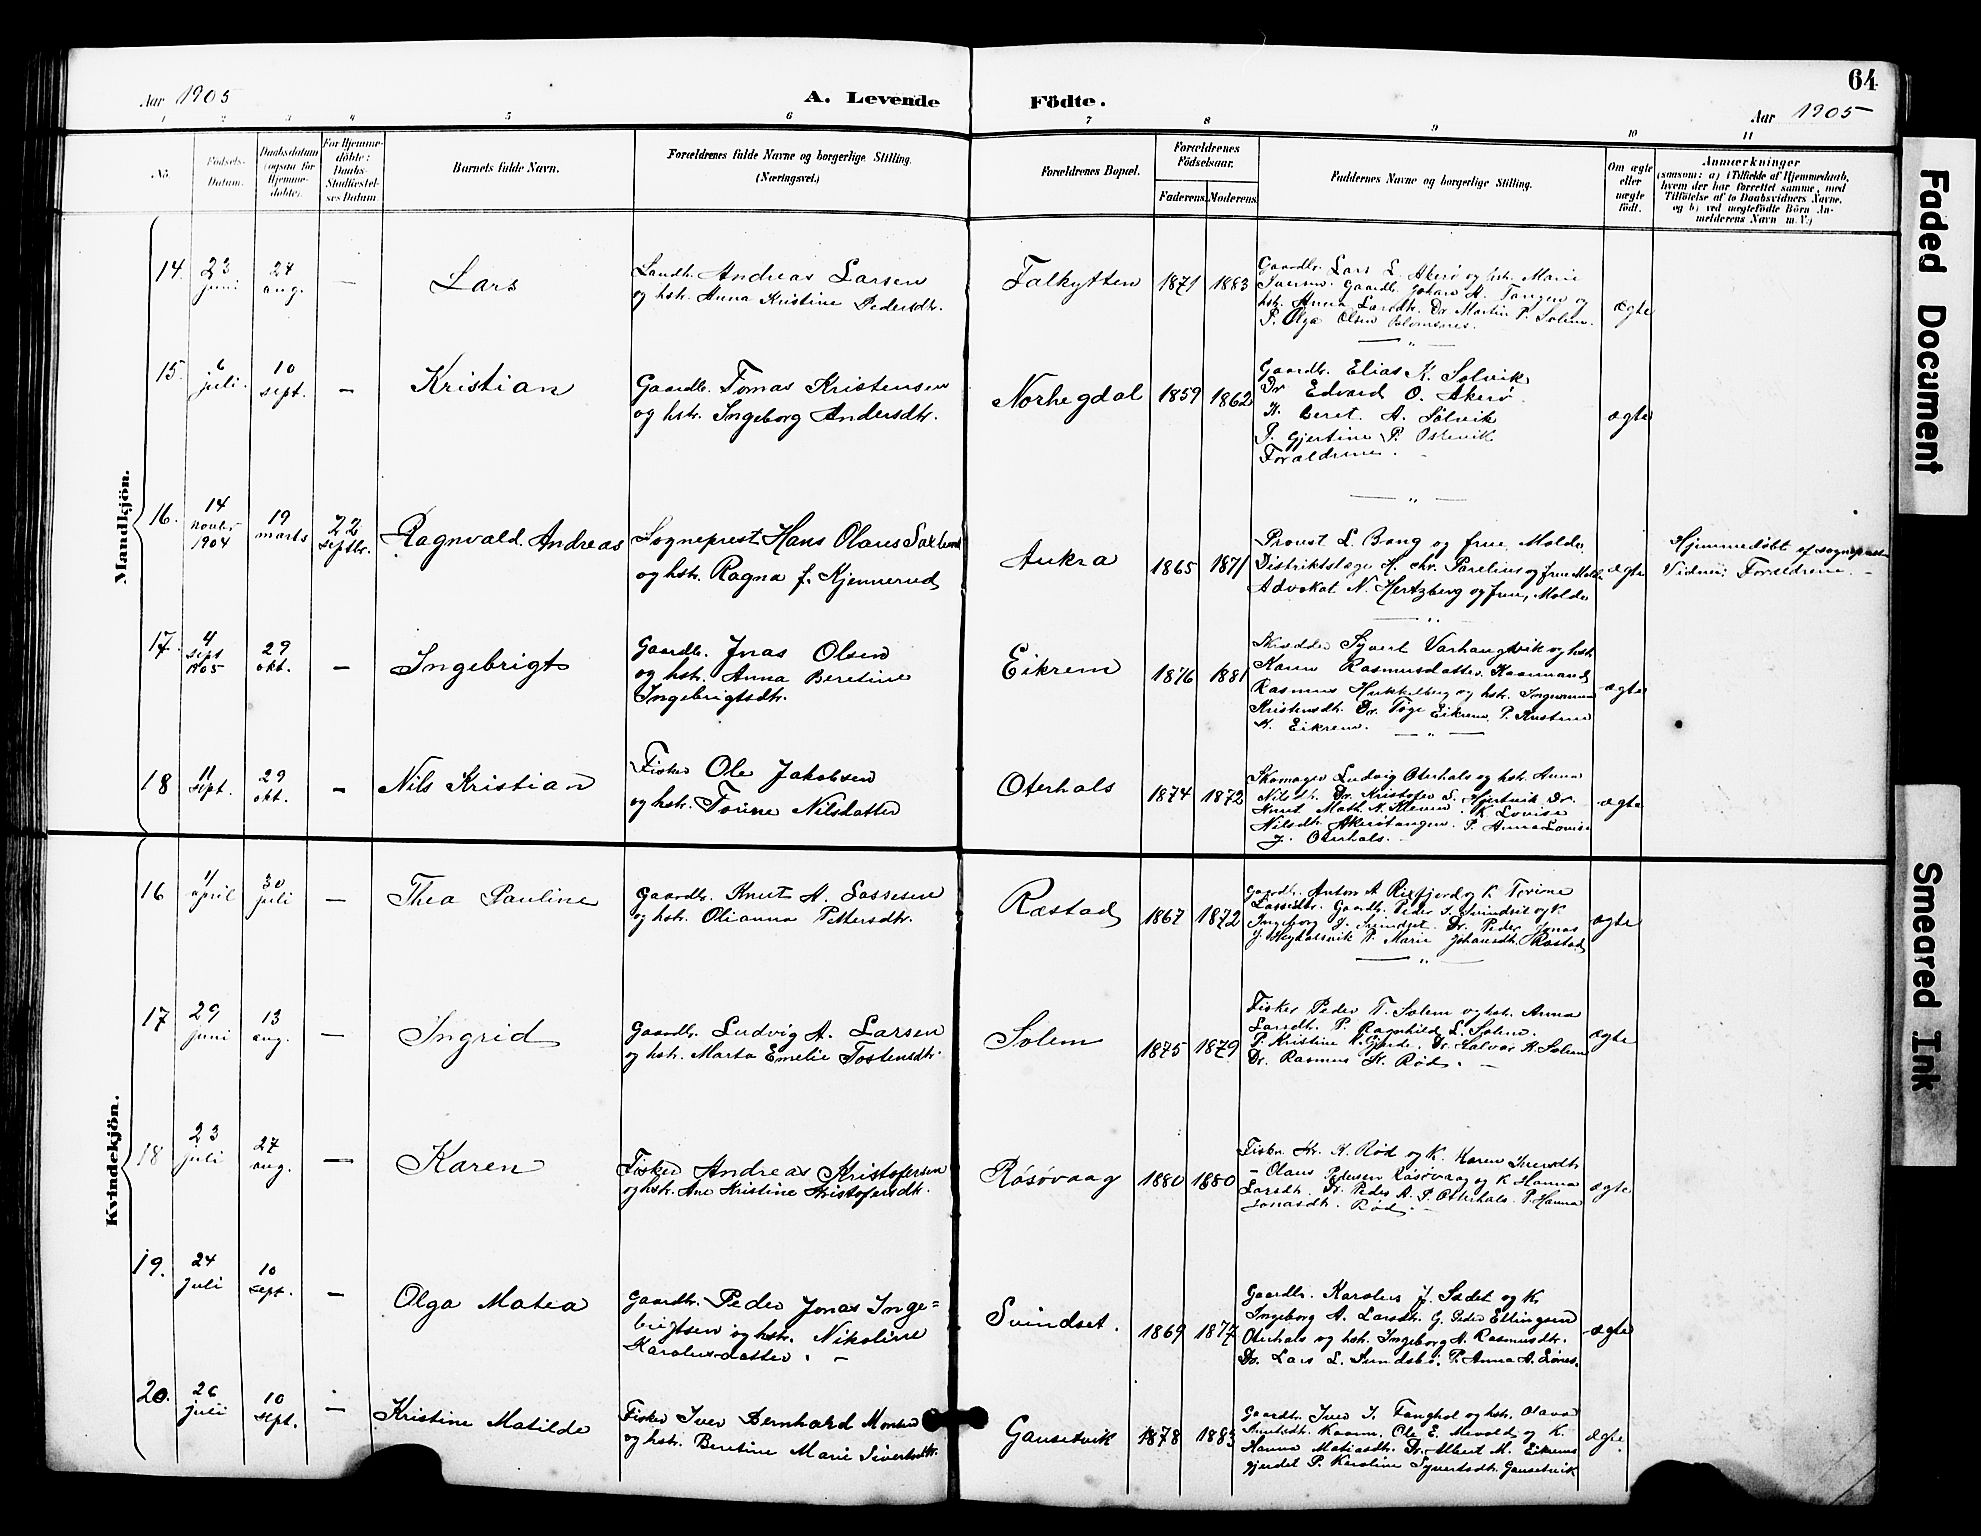 64
Aar 1905
A. Levende Fødte.
Aar 1905
1 2 3 4 5 6 7 8 9 10 11
No.
Fødsels-Datum.
Daabsdatum (ogsaa for Hjemme-døbte).
For Hjemme-døbte: Daabs-Stadfæstel-ses Datum
Barnets fulde Navn.
Forældrenes fulde Navne og borgerlige Stilling. (Næringsvei.)
Forældrenes Bopæl.
Forældrenes Fødselsaar.
Faderens. Moderens.
Faddernes Navne og borgerlige Stilling.
Om ægte eller uægte født.
Anmærkninger
(saasom: a) i Tilfælde af Hjemmedaab,
hvem der har forrettet samme, med
Tilføielse af to Daabsvidners Navne,
og b) ved uægtefødte Børn An-
melderens Navn m. V.)
Mandkjön.
14. 23 juni 24 aug. —
Lars
Landh. Andreas Larsen
og hstr. Anna Kristine Pedersdtr.
Falkhytten 1871 1883
Gaardbr. Lars L. Akerø og hstr. Marie
Iversen. Gaardb. Johan A. Tangen og
hstr. Anna Larsdtr. Dr. Martin P. Solem.
P. Olga Olsen
ægte
15. 6 juli. 10 sept. —
Kristian
Gaardbr. Tomas Kristensen
og hstr. Ingeborg Andersdtr.
Norhegdal 1859 1862
Gaardbr. Elias K. Solvik
Dr. Edvard O. Akerø.
K. Beret A. Solvik
P. Gjertine P. Ostevik
Forældrene.
ægte
16. 14 novbr. 1904 19 marts 22 septbr.
Ragnvald Andreas
Sogneprest Hans Olaus Saxlund
og hstr. Ragna f. Kjennerud
Aukra 1865 1871
Provst L. Bang og frue, Molde
Distriktslæge H. Chr. Parelius og frue Molde
Advokat N. Hertzberg og frue, Molde
ægte
Hjemmedøbt af sognepresten
Vidner: Forældrene. —
17. 4 sept 1905 29 okt. —
Ingebrigt
Gaardbr. Jonas Olsen
og hstr. Anna Beretine
Ingebrigtsdtr.
Eikrem 1876 1881
Skrædder Syvert Varhaugvik og hstr.
Karen Rasmusdatter. Kaarmand
Rasmus Hukkelberg og hstr.
Kristensdtr. Dr. Eikrem P.
K. Eikrem.
ægte
18 11 sept. 29 okt. —
Nils Kristian
Fisker Ole Jakobsen
og hstr. Torine Nilsdatter
Oterhals 1874 1872
Skomager Ludvig Oterhals og hstr. Anna
Nilsdtr. Dr. Kristofer S. Hjertvik Dr.
Knut Math. N. K. Lovise
Nilsdtr. Akerøtangen. P. Anna Lovise
J. Oterhals. —
ægte
Kvindekjön.
16 11 april 30 juli —
Thea Pauline
Gaardbr. Knut A. Lassesen
og hstr. Olianna Pettersdtr.
Rastad 1867 1872
Gaardbr. Anton A. Rixfjord og K. Torine
Lassedtr. Gaardbr. Peder J. Svindset og K.
Ingeborg J. Svindset. Dr. Peder Jonas
P. Marie Johansdtr. Rastad
ægte
17 29 juni 13 aug. —
Ingrid
Gaardbr. Ludvig A. Larsen
og hstr. Marta Emelie Tostensdtr.
Solem 1875 1879
Fisker Peder T. Solem og hstr. Anna
Larsdtr. P. Ragnhild L. Solem.
P. Kristine K. Gjerde. Dr. Halvor K. Solem
Dr. Rasmus K. Rød. —
ægte
18 23 juli 27 aug. —
Karen
Fisker Andreas Kristofersen
og hstr. Ane Kristine Kristofersdtr.
Røsøvaag 1880 1880
Fisker Kr. K. Rød og K. Karen Iversdtr.
— Olaus Pedersen Røsøvaag og K. Hanna
Larsdtr. Dr. Peder A. P. Otterhals. P. Hanna
Jonasdtr. Rød. —
ægte
19. 24 juli 10 sept. —
Olga Matea
Gaardbr. Peder Jonas Inge=
brigtsen og hstr. Nikoline
Karolusdatter. —
Svindset. 1869 1877
Gaardbr. Karolus J. Sødet og K.
Ingeborg A. Larsdtr. G. Peder Ellingsen
Oterhals og hstr. Ingeborg A. Rasmusdtr.
Dr. Lars L. Sundsbø. P. Anna A.
ægte
20. 26 juli 10 sept. —
Kristine Matilde
Fisker Iver Bernhard Monsen
og hstr. Beretine Marie Sivertsdtr.
Gausetvik 1878 1883
Gaardbr. Iver I. Tanghol og hstr. Olava
Kaarm. Ole E. Mevold og K.
Hanna Matiasdtr. Dr. Albert M. Eikrems
gjerdet P. Karoline Syvertsdtr. Gausetvik
ægte
Faded Document
Smeared Ink